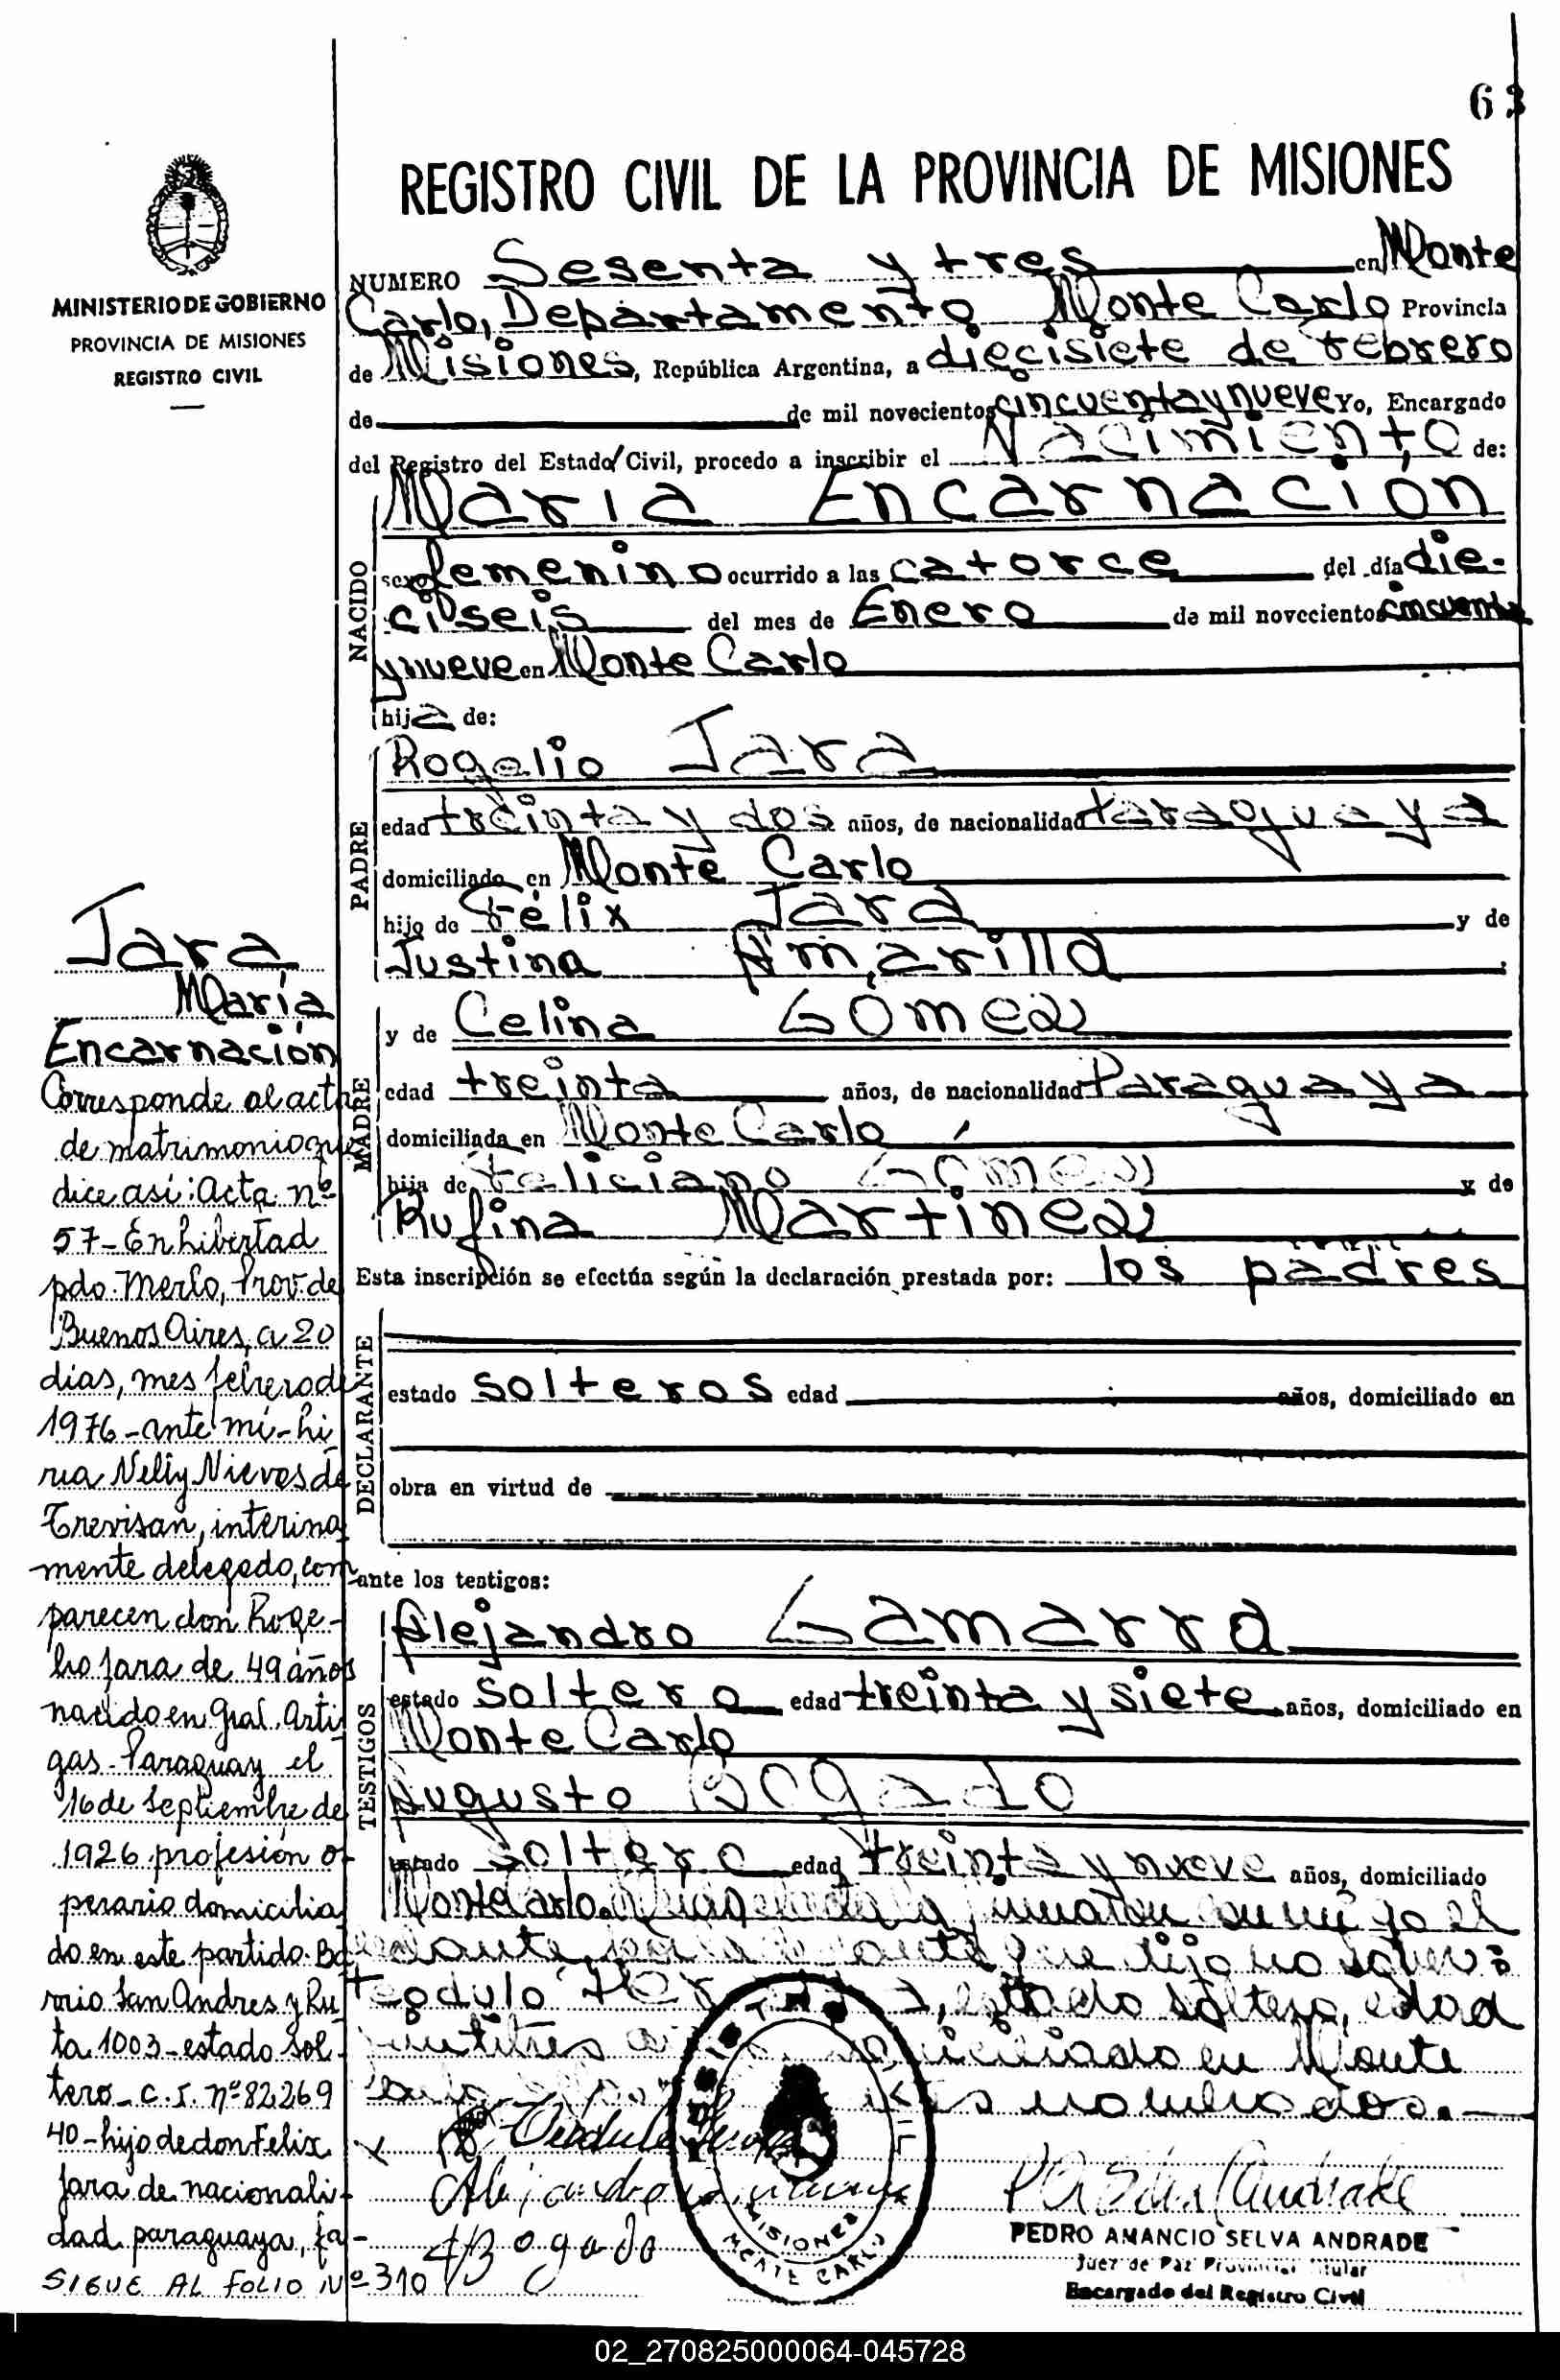 63
REGISTRO CIVIL DE LA PROVINCIA DE MISIONES
MINISTERIO DE GOBIERNO
PROVINCIA DE MISIONES
REGISTRO CIVIL
NUMERO Sesenta y tres en Monte
Carlo, Departamento Monte Carlo Provincia
de Misiones, República Argentina, a diecisiete de Febrero
de de mil novecientos cincuenta y nueve Yo, Encargado
del Registro del Estado Civil, procedo a inscribir el Nacimiento de:
NACIDO
María Encarnación
sexo femenino ocurrido a las catorce del día die-
ciseis del mes de Enero de mil novecientos cincuenta
y nueve en Monte Carlo
hija de:
PADRE
Rogelio Jara
edad treinta y dos años, de nacionalidad Paraguaya
domiciliado en Monte Carlo
hijo de Félix Jara y de
Justina Amarilla
MADRE
y de Celina Gómez
edad treinta años, de nacionalidad Paraguaya
domiciliada en Monte Carlo
hija de Feliciano Gómez y de
Rufina Martinez
Esta inscripción se efectúa según la declaración prestada por: los padres
DECLARANTE
estado solteros edad años, domiciliado en
obra en virtud de
ante los testigos:
TESTIGOS
Alejandro Gamarra
estado soltero edad treinta y siete años, domiciliado en
Monte Carlo
Augusto Bogado
estado soltero edad treinta y nueve años, domiciliado
Monte Carlo. firmaron conmigo el
que dijo no saber:
Teodulo estado soltero, edad
domiciliado en Monte
dos.
Jara
María
Encarnación
Corresponde al acta
de matrimonio que
dice así: Acta nº
57- En Libertad
pdo. Merlo, Prov. de
Buenos Aires, a 20
dias, mes febrero de
1976 - ante mi - hi
ria Nelly Nieves de
Trevisan, interina
mente delegado, com
parecen don Roge-
lio Jara de 49 años
nacido en Gral. Arti
gas - Paraguay el
16 de Septiembre de
1926 profesión o-
perario domicilia
do en este partido. Ba
rrio San Andres y Ru
ta 1003 - estado sol-
tero - C.I. nº 82269
40 - hijo de don Felix
Jara de nacionali-
dad paraguaya, fa-
SIGUE AL FOLIO Nº 310
Alejandro Gamarra
A Bogado
MISIONES
MONTE CARLO
PEDRO AMANCIO SELVA ANDRADE
Juez de Paz Provincial Titular
Encargado del Registro Civil
02_270825000064-045728